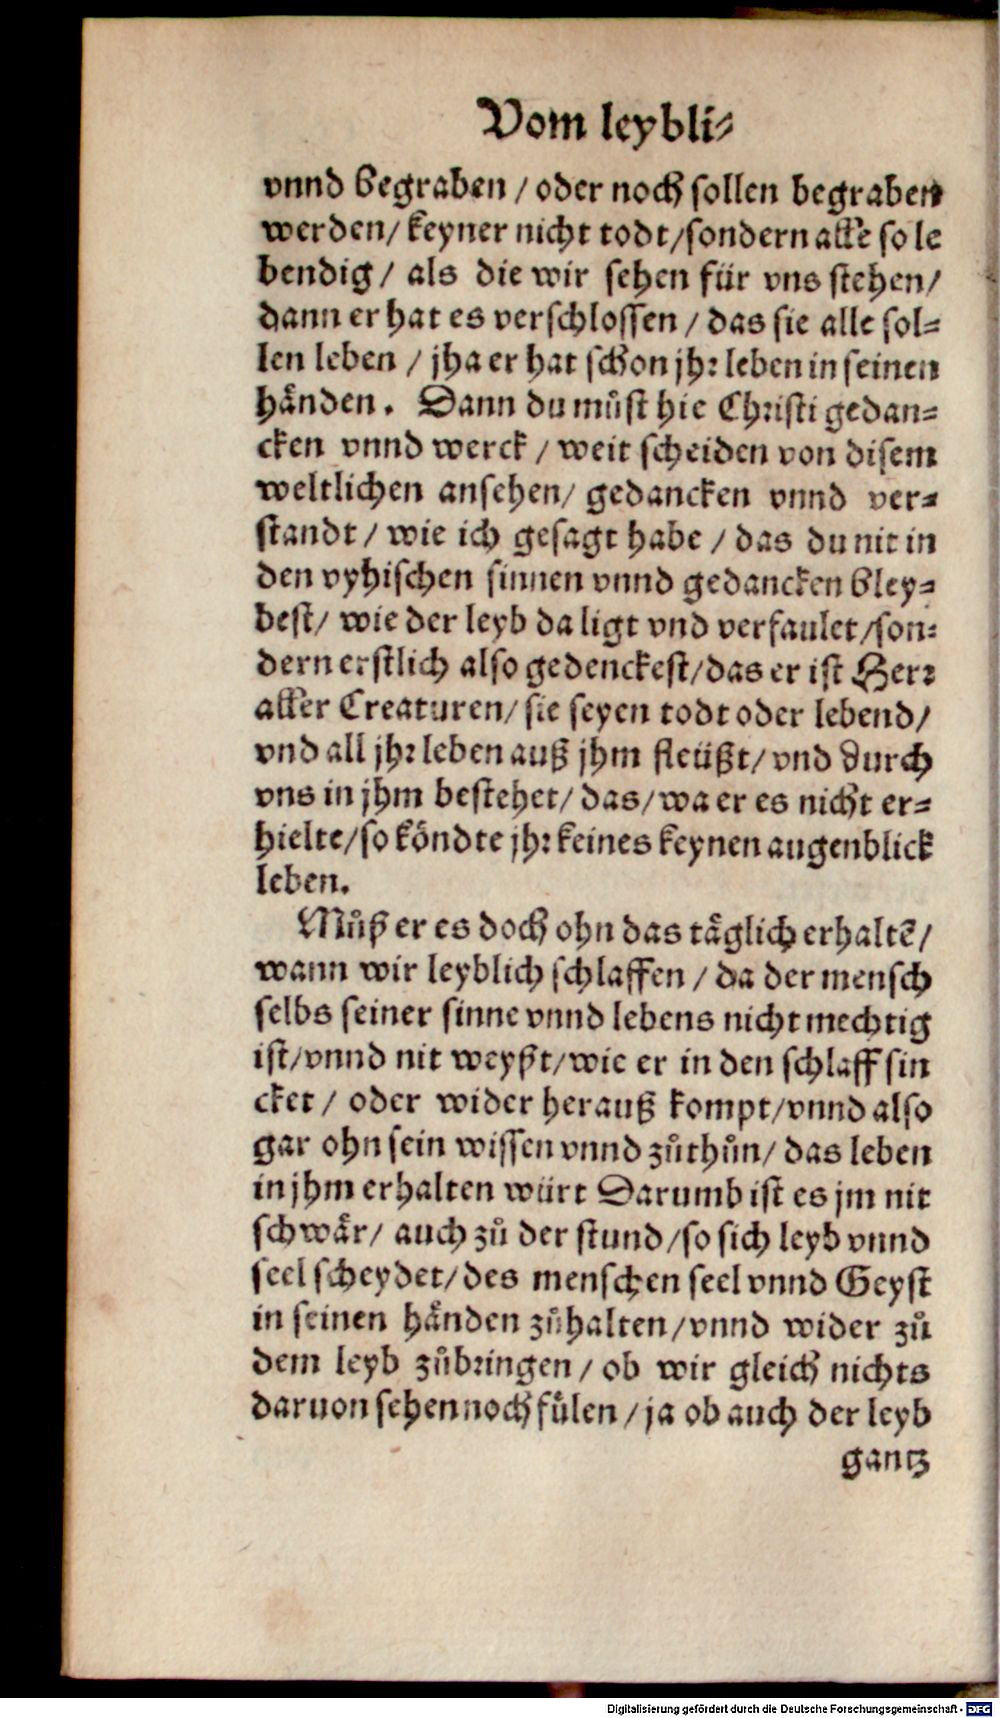 Vom leybli⸗
vnnd begraben / oder noch sollen begraben
werden/ keyner nicht todt/sondern alle so le
bendig/ als die wir sehen für vns stehen/
dann er hat es verschlossen / das sie alle sol⸗
len leben / jha er hat schon jhr leben in seinen
hånden. Dann du můst hie Christi gedan⸗
cken vnnd werck / weit scheiden von disem
weltlichen ansehen/ gedancken vnnd ver⸗
standt / wie ich gesagt habe / das du nit in
den vyhischen sinnen vnnd gedancken bley⸗
best/ wie der leyb da ligt vnd verfaulet/son⸗
dern erstlich also gedenckest/das er ist Herr
aller Creaturen/ sie seyen todt oder lebend/
vnd all jhr leben auß jhm fleüßt/ vnd durch
vns in jhm bestehet/ das/ wa er es nicht er⸗
hielte/so koͤndte jhr keines keynen augenblick
leben.
Můß er es doch ohn das taͤglich erhaltẽ/
wann wir leyblich schlaffen / da der mensch
selbs seiner sinne vnnd lebens nicht mechtig
ist/vnnd nit weyßt/wie er in den schlaff sin
cket / oder wider herauß kompt/vnnd also
gar ohn sein wissen vnnd zůthůn/ das leben
in jhm erhalten würt Darumb ist es jm nit
schwaͤr/ auch zů der stund/so sich leyb vnnd
seel scheydet/des menschen seel vnnd Geyst
in seinen haͤnden zůhalten/vnnd wider zů
dem leyb zůbringen / ob wir gleich nichts
daruon sehen noch fülen / ja ob auch der leyb
gantz
Digitalisierung gefördert durch die Deutsche Forschungsgemeinschaft - DFG